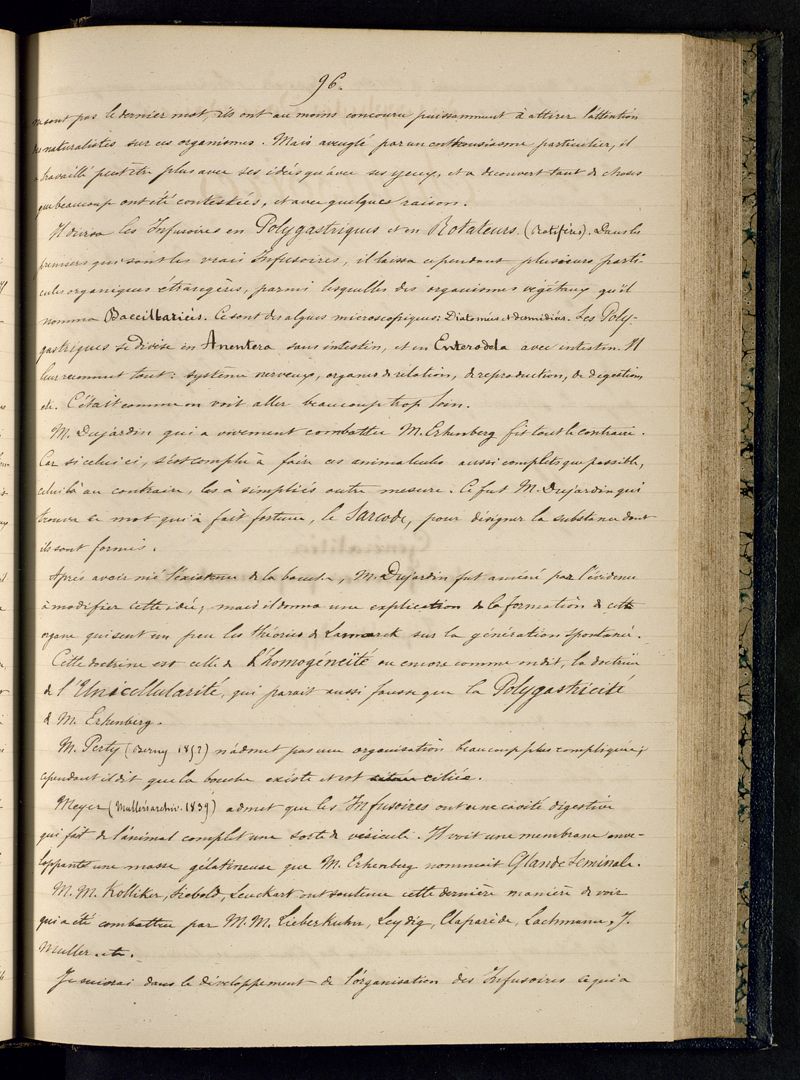 96.
ne sont pas le dernier mot, ils ont au moins concouru puissamment à attirer l'attention
des naturalistes sur ces organismes. Mais aveuglé par un enthousiasme particulier, il
a travaillé peut être plus avec ses idées qu'avec ses yeux, et a decouvert tant de choses
que beaucoup ont été contestées, et avec quelques raison.
Il divisa les Infusoires en Polygastriques et en Rotateurs. (Rotifères). Dans les
premiers qui sont les vrais Infusoires, il laissa cependant plusieurs parti-
cules organiques étrangères, parmi lesquelles des organismes végétaux qu'il
nomma Baccillariés. Ce sont des algues microscopiques: Diatomées et desmidiées. Les Poly-
gastriques se divise en Anentera sans intestin, et en Enterodela avec intestin. Il
leur reconnut tout: système nerveux, organes de relation, de reproduction, de digestion,
etc. C'était comme on voit aller beaucoup trop loin.
M. Dujardin qui a vivement combattu M. Erhenberg fit tout le contraire.
Car si celui ci, s'est complu à faire ces animalcules aussi complets que possible,
celui là au contraire, les à simpliés outre mesure. Ce fut M. Dujardin qui
trouva ce mot qui à fait fortune, le Sarcode, pour désigner la substance dont
ils sont formés.
Après avoir nié l'existence de la bouche, M. Dujardin fut amené par l'évidence
à modifier cette idée; mais il donna une explication de la formation de cette
organe qui sent un peu les théories de Lamarck sur la génération spontanée.
Cette doctrine est celle de l'homogéneïté ou encore comme on dit, la doctrine
de l'Unicellularité, qui parait aussi fausse que la Polygastricité
de M. Erhenberg.
M. Perty (Berny 1852) n'admet pas une organisation beaucoup plus compliquée;
cependant il dit que la bouche existe et est ciliée.
Meyer (Mullers archiv. 1839) admet que les Infusoires ont une cavité digestive
qui fait de l'animal complet une sorte de vésicule. Il voit une membrane enve-
loppante une masse gélatineuse que M. Erhenberg nommait Glande Seminale.
M. M. Kolliker, Siebold, Leuckart ont soutenu cette dernière manière de voir
qui a été combattue par M. M. Lieberkuhn, Leydig, Claparède, Lachmann, J.
Muller. etc.
Je suivrai dans le développement de l'organisation des Infusoires ce qui a